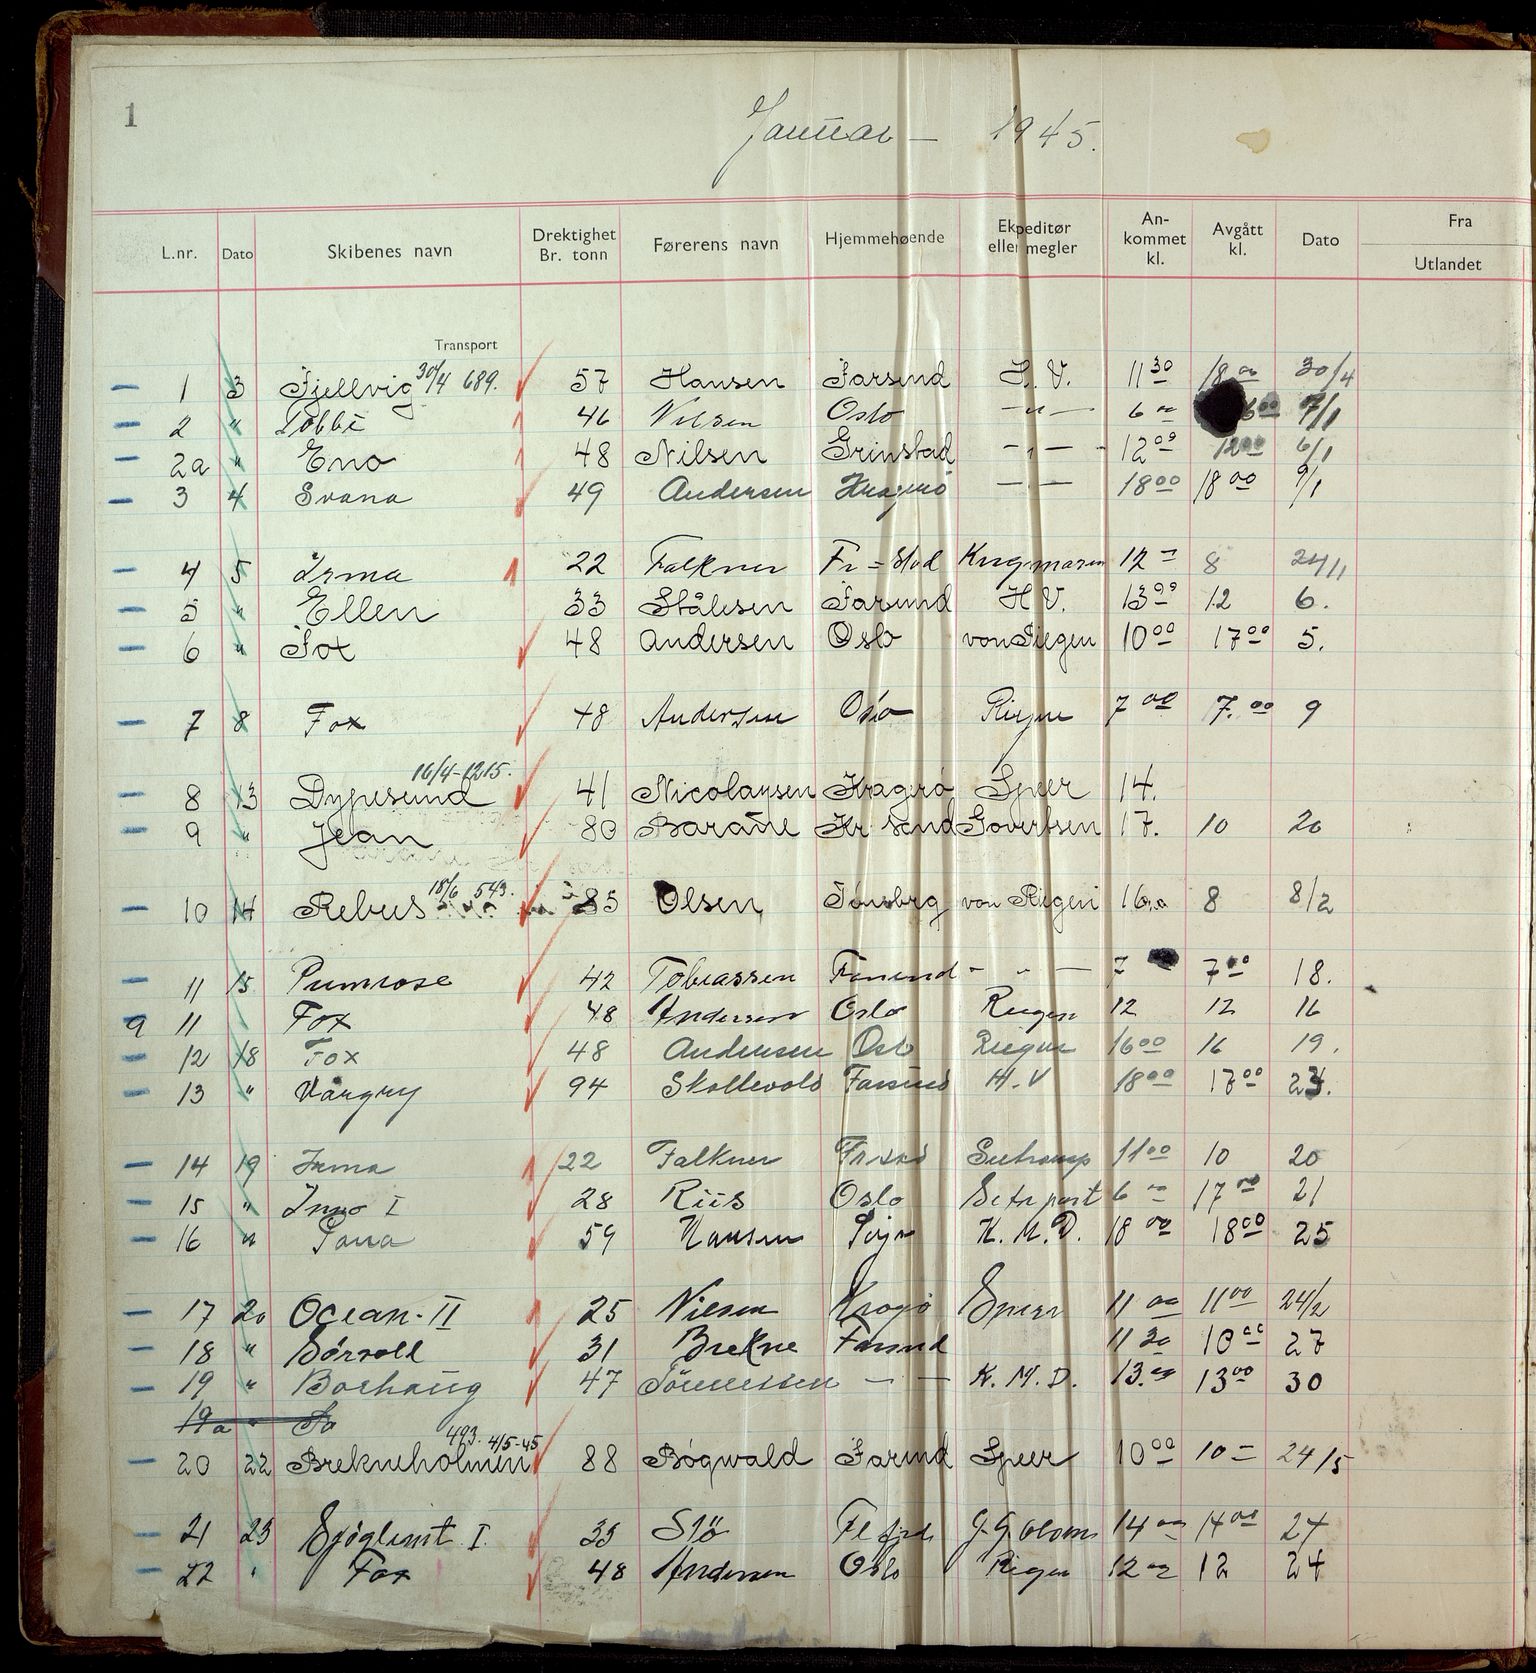 1
Januar — 1945.
L.nr. Dato Skibenes navn Drektighet Br. tonn Førerens navn Hjemmehøende Ekpeditør eller megler An-kommet kl. Avgått kl. Dato Fra Utlandet
Transport
— 1 3 Fjellvig 30/4 689. 57 Hansen Farsund H. V. 11 30 18 00 30/4
— 2 " Tobbi 46 Nilsen Oslo — " — 6 00 7/1
— 2a " Eno 48 Nilsen Grinstad — " — 12 00 12 00 6/1
— 3 4 Svana 49 Andersen Kragerø — — 18 00 18 00 9/1
— 4 5 Irma 22 Falkner Fr=stad 12 — 8 24/1
— 5 " Ellen 33 Stålesen Farsund H V. 13 00 12 6.
— 6 " Fox 48 Andersen Oslo von Riegen 10 00 17 00 5.
— 7 8 Fox 48 Andersen Oslo Riegen 7 00 7. 00 9
16/4-1215.
— 8 13 Dypesund 41 Nicolaysen Kragerø Speer 14.
— 9 " Jean 80 Kr sand Govertsen 17. 10 20
— 10 14 Rebus 18/6 543. 85 Olsen Tønsbrg von Riegen 16 8 8/2
— 11 15 Pumrose 42 Tobiassen Farsund - " — 7 7 00 18.
9 11 Fox 48 Andersen Oslo Riegen 12 12 16
— 12 18 Fox 48 Andersen Oslo Riegen 16 00 16 19.
— 13 " Vårgry 94 Skollevold Farsund H. V 18 00 17 00 23.
— 14 19 Irma 22 Falkner Fr.stad Seetransp 11 00 10 20
— 15 " Inno I 28 Riis Oslo 6 — 17 00 21
— 16 " 59 Hansen K. M. D. 18 00 18 00 25
— 17 20 Ocean-II 25 Nilsen Kragø Speer 11 00 11 00 24/2
— 18 " Sørvold 31 Brekne Farsund 11 30 10 00 27
— 19 " Borhaug 47 Tönnessen — — K. M. D. 13.00 13 00 30
19a " Fo
493. 4/5-45
— 20 22 Brekneholmen 88 Bøgwald Farsund Speer 10 00 10 — 24/5
— 21 23 Sjøglimt I. 35 Stö 14 00 14 00 24
— 22 " Fox 48 Andersen Oslo Riegen 12 00 12 24